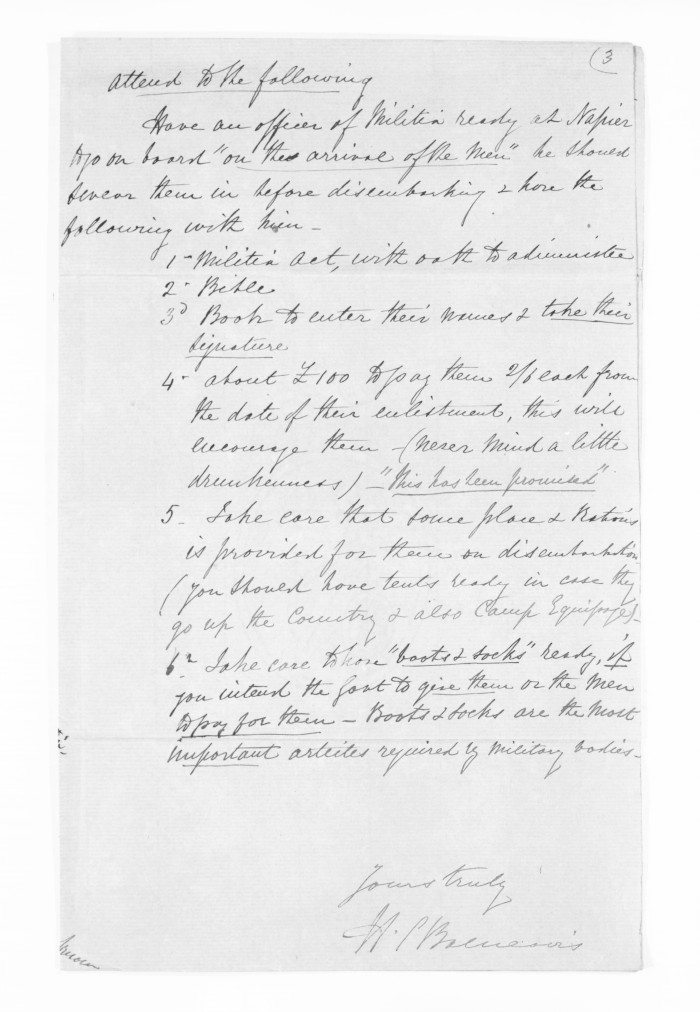 (3
attend to the following
Have an officer of Militia ready at Napier
to go on board "on the arrival of the Men" he should
swear them in before disembarking & have the
following with him -
1st Militia Act, with oath to administer
2d Bible
3d Book to enter their names & take their
signature
4 - about £100 to pay them 2/6 each from
the date of their enlistment, this will
encourage them - (never mind a little
drunkenness) - "this has been promised"
5 - Take care that some place & Rations
is provided for them on disembarkation
(you should have tents ready in case they
go up the Country & also Camp Equipage) -
6th Take care to have "boots & socks" ready, if
you intend the Govt to give them or the Men
to pay for them - Boots & socks are the most
important articles required by Military bodies -
Yours truly
H. C Balneavis